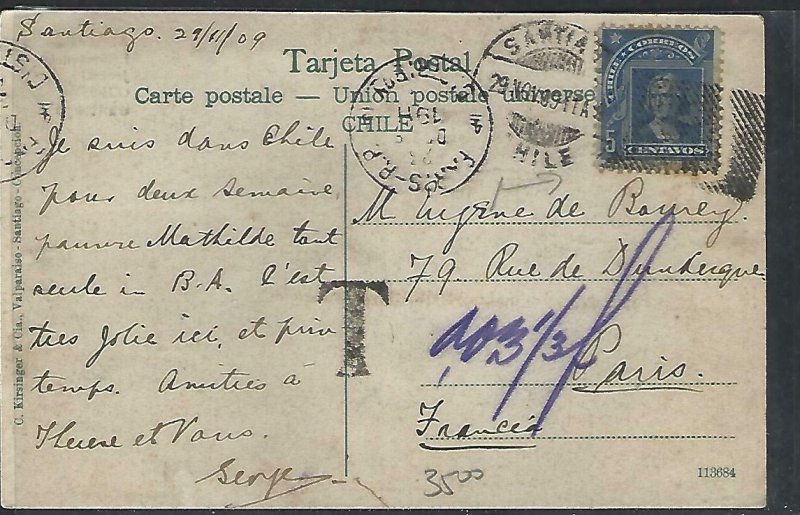 Santiago. 29/11/09
Tarjeta Postal
Carte postale — Union postale universelle
CHILE
SANTIAGO
CHILE
CORREOS
5
CENTAVOS
PARIS-R.P
Je suis dans Chile
pour deux semaine,
pauvre Mathilde tout
seule in B.A. C'est
tres Jolie ici, et prin-
temps. Amities à
Therese et Vous.
George
M Eugène de
79. Rue de Dunkerque
Paris.
Francia
T
3500
113684
C. Kirsinger & Cia., Valparaiso - Santiago - Concepcion